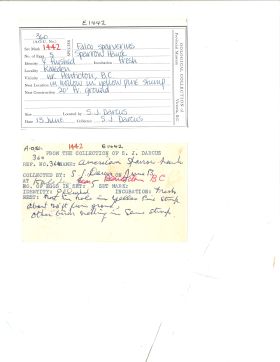 E1442
360
Set Mark 1442 Falco sparverius
No. of Eggs 5 Sparrow Hawk
Identity Flushed Incubation Fresh
Locality Kaleden
Vicinity nr. Penticton, B.C.
Nest Location in hollow in yellow pine stump
Nest Construction 20' fr. ground
Size Located by S J Darcus
Date 13 June Collector S J Darcus
OOLOGICAL COLLECTION of
Provincial Museum
Victoria, B.C.
1442 E1442
FROM THE COLLECTION OF S. J. DARCUS
360
REF. NO. 360 NAME: American Sparrow Hawk
COLLECTED BY: S J Darcus ON June 13
AT Penticton BC
NO. OF EGGS IN SET: 5 SET MARK:
IDENTITY: Flushed INCUBATION: Fresh
NEST: in hole in yellow Pine stump
about 20 ft from ground,
other birds nesting in same stump